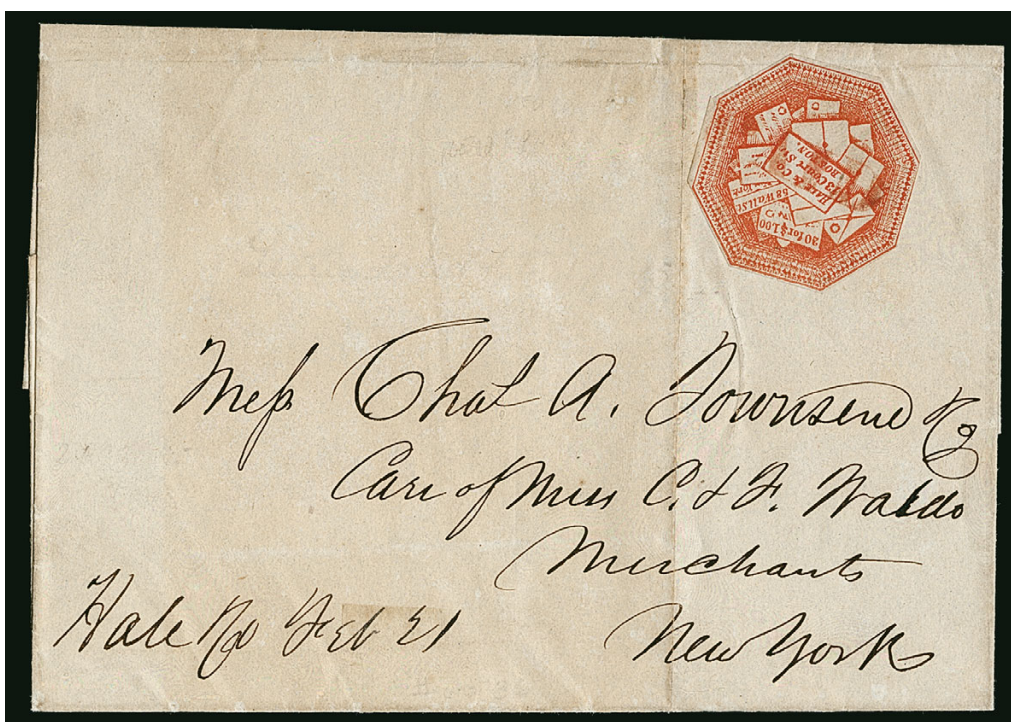 Hale & Co.
13 Court St.
BOSTON.
58 Wall St
20 for $1.00
Mess Chas A. Townsend
Care of Mess C. & F. Waldo
Merchants
New York
Hale & Co Feb 21